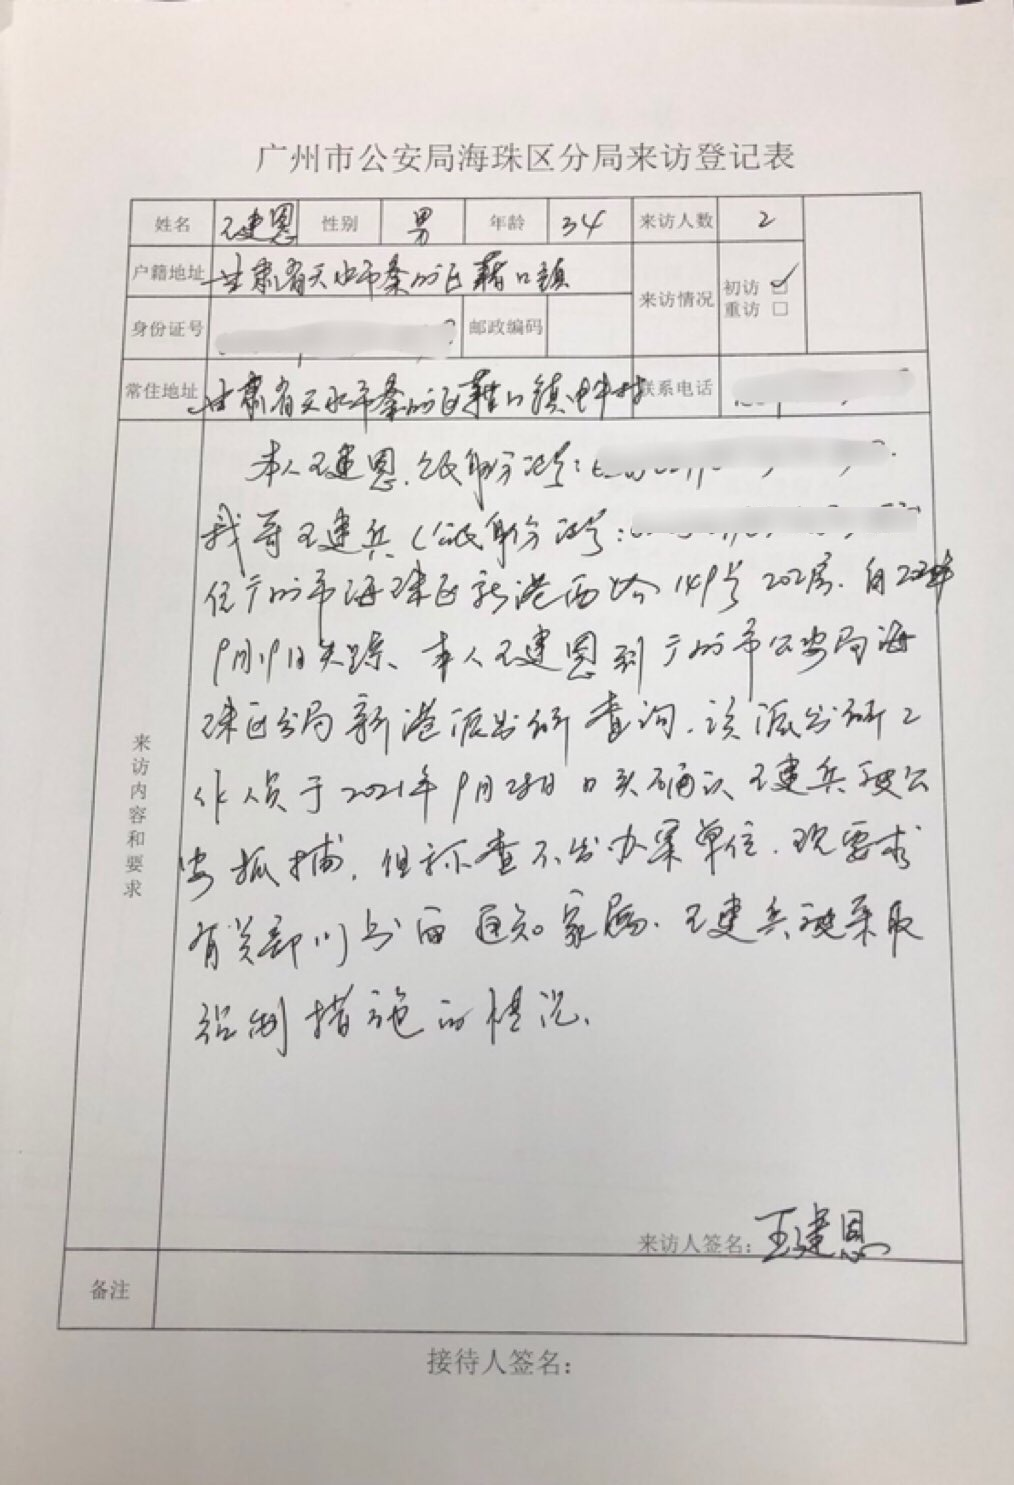 广州市公安局海珠区分局来访登记表
姓名 王建恩 性别 男 年龄 34 来访人数 2
户籍地址 甘肃省天水市秦州区藉口镇 来访情况 初访 ☑
重访 □
身份证号 邮政编码
常住地址 甘肃省天水市秦州区藉口镇 村 联系电话
来访内容和要求
本人王建恩,公民身份证号:
我哥王建兵(公民身份证号:
住广州市海珠区新港西路149号202房.自2021年
9月19日失踪、本人王建恩到广州市公安局海
珠区分局新港派出所查询.该派出所工
作人员于2021年9月28日口头确认王建兵被公
安抓捕,但称查不出办案单位.现要求
有关部门书面通知家属.王建兵被采取
强制措施的情况.
来访人签名:王建恩
备注
接待人签名: